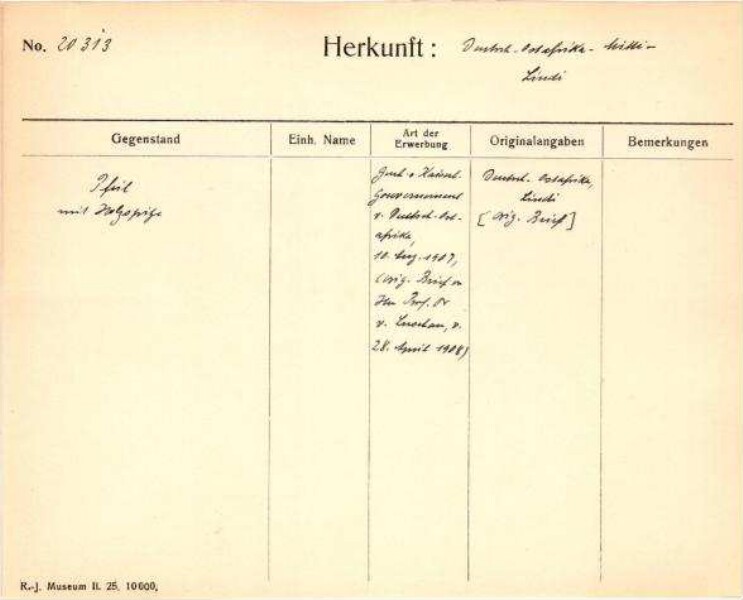 No. 20313
Herkunft: Deutsch-Ostafrika-
Lindi
Gegenstand
Einh. Name
Art der
Erwerbung
Originalangaben
Bemerkungen
Pfeil
mit Holzspitze
Gesch. v. Kaiserl.
Gouvernement
v. Deutsch-Ost-
afrika,
10. 1907,
(orig. Brief v.
Hrn Prof. Dr
v. Luschan, v.
28. April 1908)
Deutsch-Ostafrika,
Lindi
[orig. Brief]
R.-J. Museum II. 25. 10000.